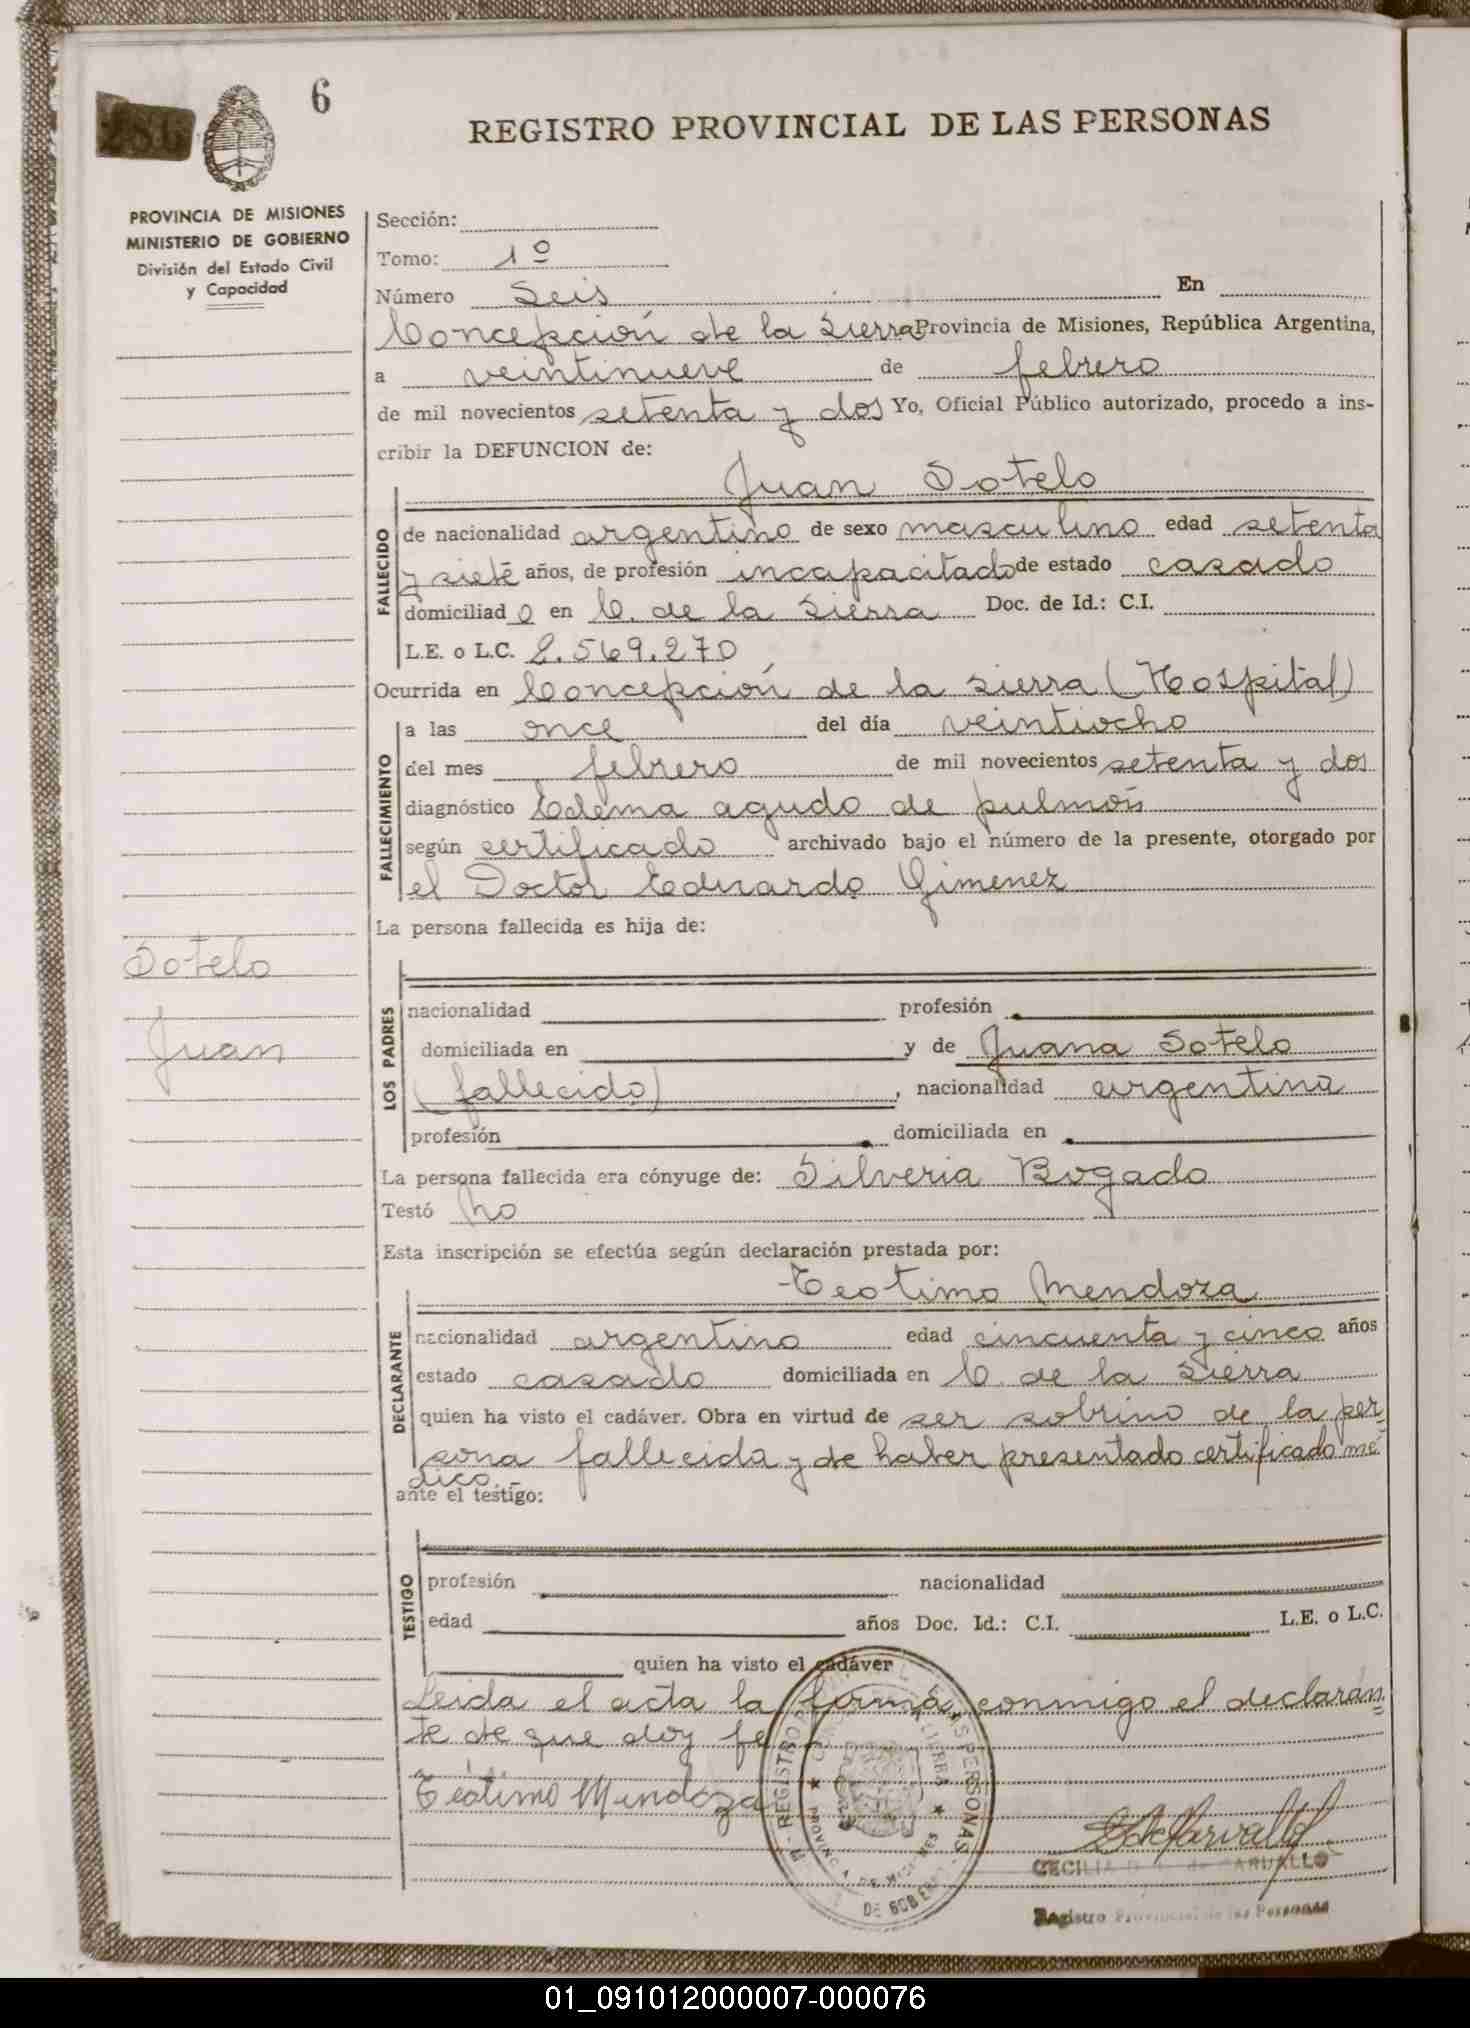 6
REGISTRO PROVINCIAL DE LAS PERSONAS
PROVINCIA DE MISIONES
MINISTERIO DE GOBIERNO
División del Estado Civil
y Capacidad
Sección:
Tomo: 1º
Número Seis En
Concepción de la Sierra Provincia de Misiones, República Argentina,
a veintinueve de febrero
de mil novecientos setenta y dos Yo, Oficial Público autorizado, procedo a ins-
cribir la DEFUNCION de:
Juan Sotelo
FALLECIDO
de nacionalidad argentino de sexo masculino edad setenta
y siete años, de profesión incapacitado de estado casado
domiciliad o en C. de la Sierra Doc. de Id.: C.I.
L.E. o L.C. 2.569.270
Ocurrida en Concepción de la Sierra (Hospital)
FALLECIMIENTO
a las once del día veintiocho
del mes febrero de mil novecientos setenta y dos
diagnóstico Edema agudo de pulmón
según certificado archivado bajo el número de la presente, otorgado por
el Doctor Eduardo Gimenez
La persona fallecida es hija de:
Sotelo
Juan
LOS PADRES
nacionalidad profesión
domiciliada en y de Juana Sotelo
(fallecido), nacionalidad argentina
profesión domiciliada en
La persona fallecida era cónyuge de: Silveria Bogado
Testó no
Esta inscripción se efectúa según declaración prestada por:
Teotimo Mendoza
DECLARANTE
nacionalidad argentino edad cincuenta y cinco años
estado casado domiciliada en C. de la Sierra
quien ha visto el cadáver. Obra en virtud de ser sobrino de la per
sona fallecida y de haber presentado certificado mé
dico.
ante el testigo:
TESTIGO
profesión nacionalidad
edad años Doc. Id.: C.I. L.E. o L.C.
quien ha visto el cadáver
Leida el acta la firma, conmigo el declaran
te de que doy fe
Teótimo Mendoza
REGISTRO PERSONAS
CECILIA de CARVALLO
Registro Provincial de las Personas
01_091012000007-000076